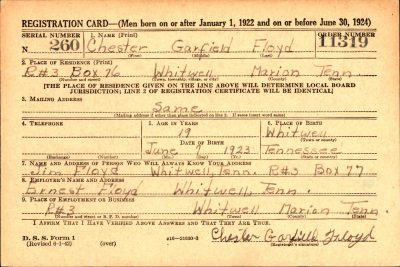 REGISTRATION CARD—(Men born on or after January 1, 1922 and on or before June 30, 1924)
SERIAL NUMBER 1. NAME (Print) ORDER NUMBER
N 260 Chester Garfield Floyd 11319
(First) (Middle) (Last)
2. PLACE OF RESIDENCE (Print)
R#3 Box 76 Whitwell Marion Tenn
(Number and street) (Town, township, village, or city) (County) (State)
[THE PLACE OF RESIDENCE GIVEN ON THE LINE ABOVE WILL DETERMINE LOCAL BOARD
JURISDICTION; LINE 2 OF REGISTRATION CERTIFICATE WILL BE IDENTICAL]
3. MAILING ADDRESS
Same
[Mailing address if other than place indicated on line 2. If same insert word same]
4. TELEPHONE 5. AGE IN YEARS 6. PLACE OF BIRTH
19 Whitwell
DATE OF BIRTH (Town or county)
June 7 1923 Tennessee
(Exchange) (Number) (Mo.) (Day) (Yr.) (State or country)
7. NAME AND ADDRESS OF PERSON WHO WILL ALWAYS KNOW YOUR ADDRESS
Jim Floyd Whitwell, Tenn. R#3 Box 77
8. EMPLOYER'S NAME AND ADDRESS
Ernest Floyd Whitwell, Tenn.
9. PLACE OF EMPLOYMENT OR BUSINESS
R#3 Whitwell Marion Tenn
(Number and street or R. F. D. number) (Town) (County) (State)
I AFFIRM THAT I HAVE VERIFIED ABOVE ANSWERS AND THAT THEY ARE TRUE.
D. S. S. Form 1
(Revised 6-1-42) (over) Chester Garfield Floyd
(Registrant's signature)